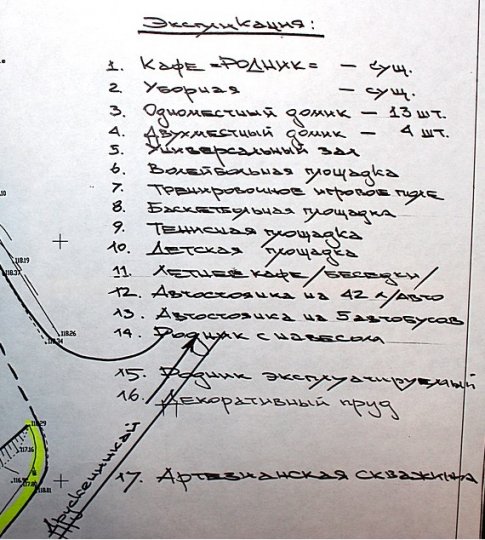 Экспликация:
1. Кафе "РОДНИК" — сущ.
2. Уборная — сущ.
3. Одноместный домик — 13 шт.
4. Двухместный домик — 4 шт.
5. Универсальный зал
6. Волейбольная площадка
7. Тренировочное игровое поле
8. Баскетбольная площадка
9. Тенисная площадка
10. Детская площадка
11. Летнее кафе /беседки/
12. Автостоянка на 42 л/авто
13. Автостоянка на 5 автобусов
14. Родник с навесом
15. Родник эксплуатируемый
16. Декоративный пруд
17. Артезианская скважина
118.19
118.37
118.26
118.29
117.16
118.11